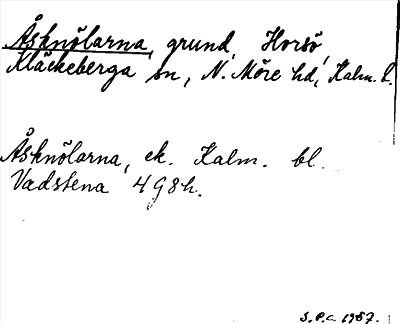 Åsknölarna, grund, Horsö,
Kläckeberga sn, N. Möre hd, Kalm. l.
Åsknölarna, ek. Kalm. bl.
Vadstena 4 G 8 h.
S.P.C. 1957.